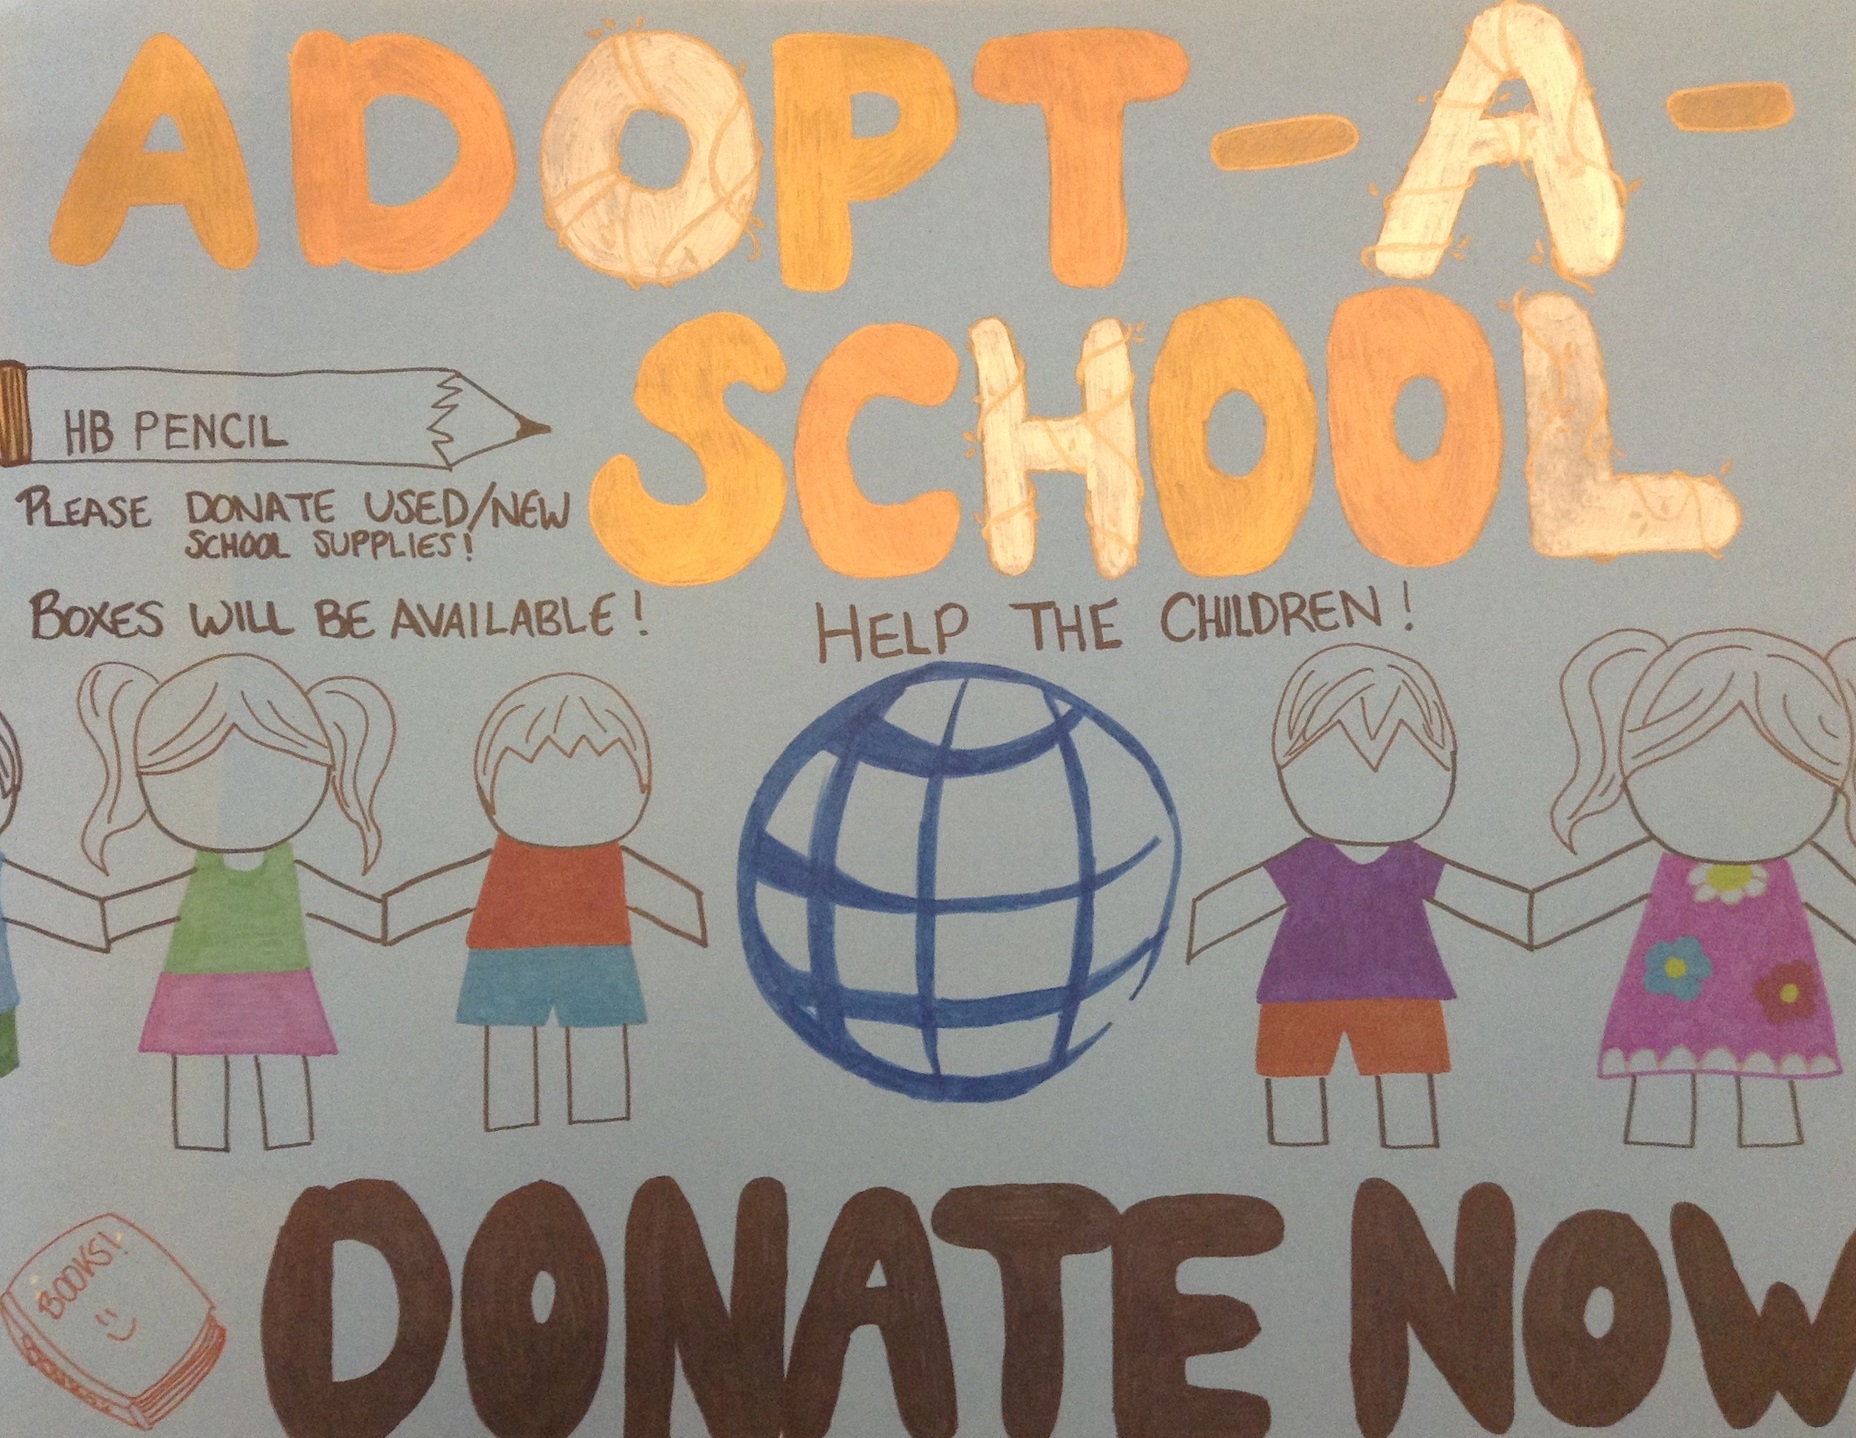 ADOPT-A-
SCHOOL
HB PENCIL
PLEASE DONATE USED/NEW
SCHOOL SUPPLIES!
BOXES WILL BE AVAILABLE!
HELP THE CHILDREN!
BOOKS!
DONATE NOW